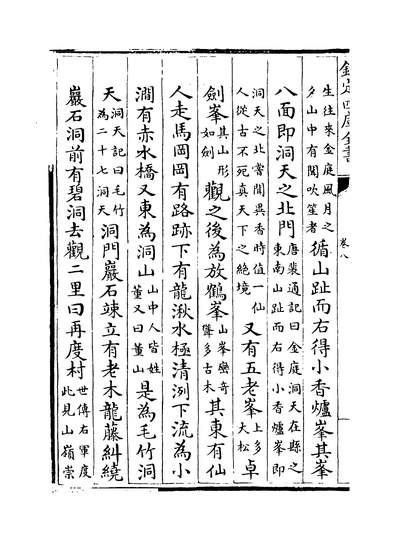 欽定四庫全書
卷八
生往來金庭風月之
夕山中有聞吹笙者
循山趾而右得小香爐峯其峯
八面即洞天之北門
唐裴通記曰金庭洞天在縣之
東南山趾而右得小香爐峯即
洞天之北嘗聞異香時值一仙
人從古不死真天下之絶境
又有五老峯
上多
大松
卓
劍峯
其山形
如劍
觀之後為放鶴峯
山峯巒奇
聳多古木
其東有仙
人走馬岡岡有路跡下有龍湫水極清洌下流為小
澗有赤水橋又東為洞山
山中人皆姓
董又曰董山
是為毛竹洞
天
洞天記曰毛竹
為二十七洞天
洞門巖石竦立有老木龍藤糾繞
巖石洞前有碧洞去觀二里曰再度村
世傳右軍度
此見山嶺崇